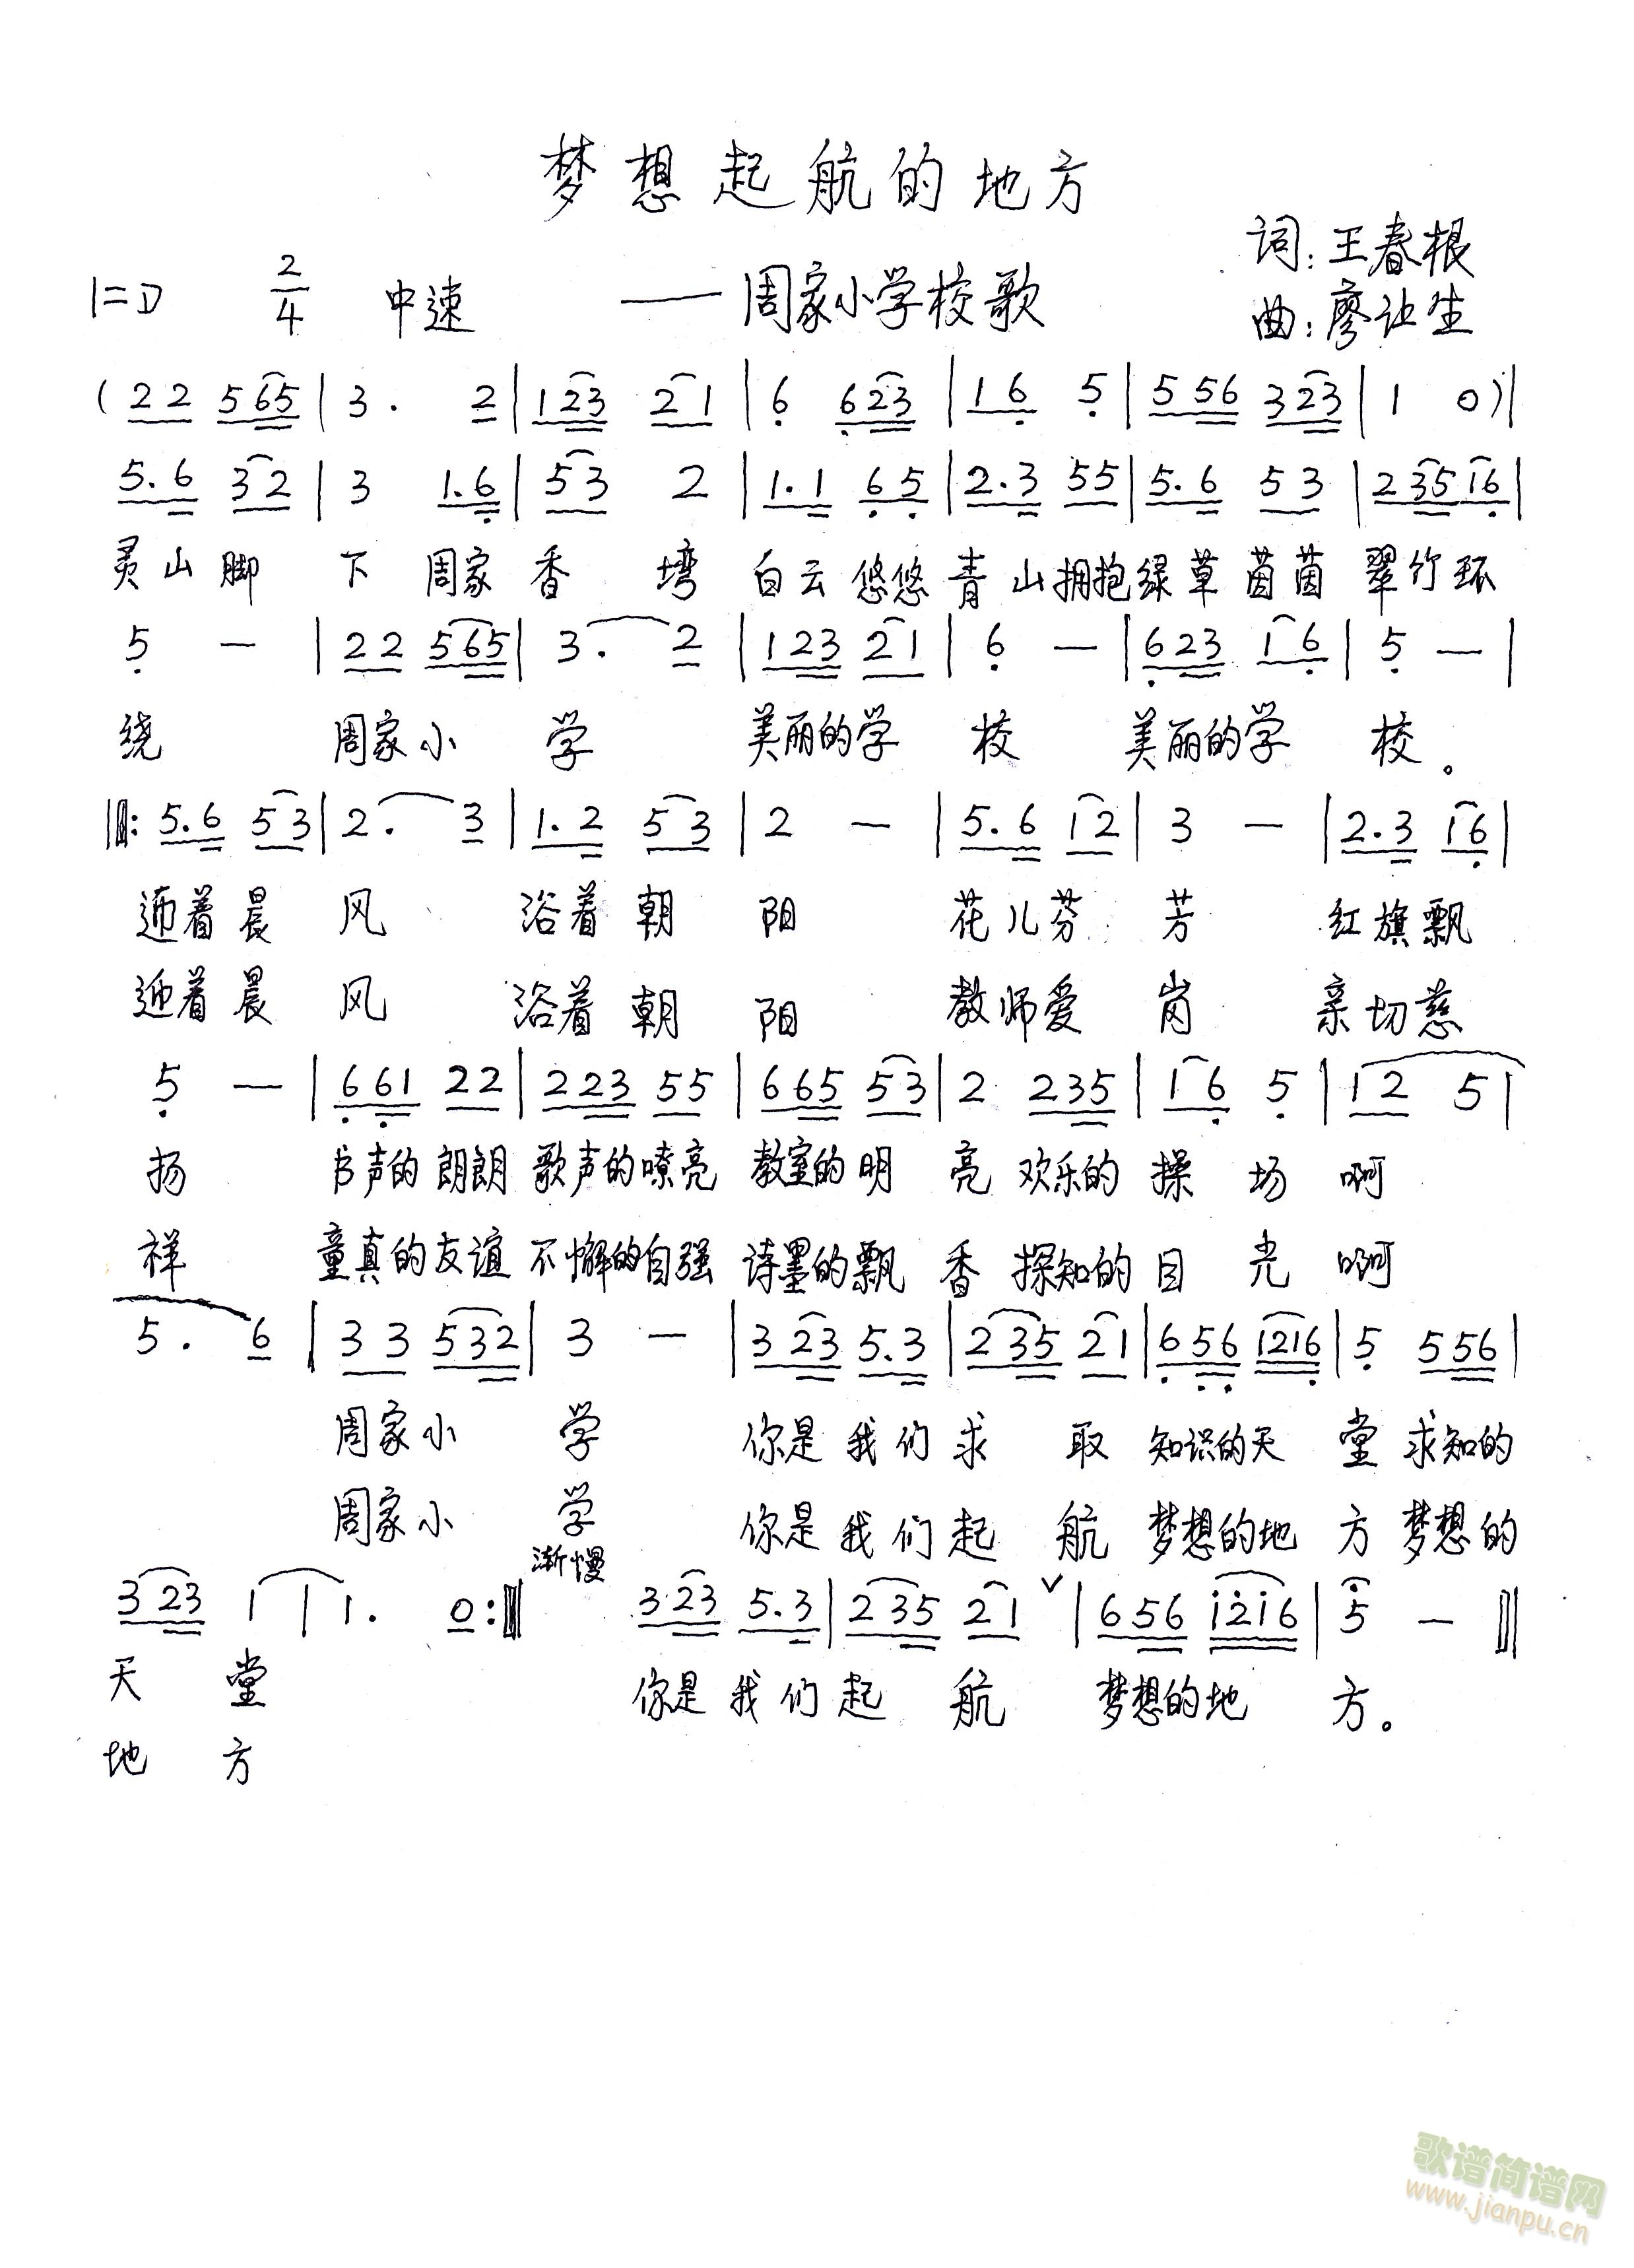 梦想起航的地方
词:王春根
1=D 2/4 中速 ——周家小学校歌
曲:廖让生
(22 565|3. 2|123 21|6 623|16 5|556 323|1 0)|
5.6 32|3 1.6|53 2|1.1 65|2.3 55|5.6 53|235 16|
灵山脚 下 周家香 塆 白云悠悠青山拥抱绿草茵茵翠竹环
5 —|22 565|3. 2|123 21|6 —|623 16|5 —|
绕 周家小 学 美丽的学 校 美丽的学 校。
‖:5.6 53|2. 3|1.2 53|2 —|5.6 12|3 —|2.3 16|
迎着晨 风 浴着朝 阳 花儿芬 芳 红旗飘
迎着晨 风 浴着朝 阳 教师爱 岗 亲切慈
5 —|661 22|223 55|665 53|2 235|16 5|12 5|
扬 书声的朗朗 歌声的嘹亮 教室的明 亮 欢乐的操 场 啊
祥 童真的友谊 不懈的自强 诗墨的飘 香 探知的目 光 啊
5. 6|33 532|3 —|323 5.3|235 21|656 1216|5 556|
周家小 学 你是我们求 取 知识的天 堂求知的
周家小 学 你是我们起 航 梦想的地 方梦想的
渐慢
323 1|1. 0:‖ 323 5.3|235 21 ∨|656 1216|5 —‖
天 堂 你是我们起 航 梦想的地 方。
地 方
歌谱简谱网
www.jianpu.cn